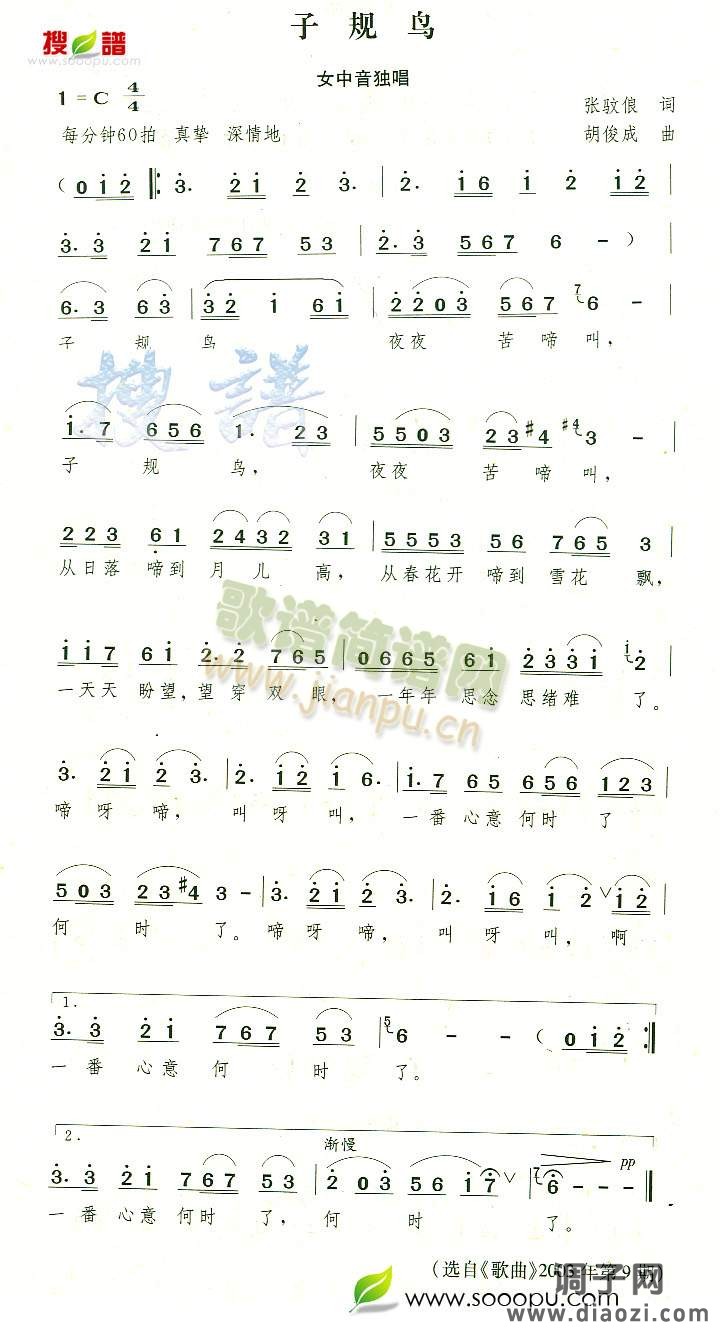 子规鸟
搜谱
www.sooopu.com
女中音独唱
1=C 4/4
张驭俍 词
每分钟60拍 真挚 深情地
胡俊成 曲
(0 1 2 ‖: 3. 2 1 2 3. | 2. 1 6 1 2 1 2
3. 3 2 1 7 6 7 5 3 | 2. 3 5 6 7 6 - )
6. 3 6 3 | 3 2 1 6 1 | 2 2 0 3 5 6 7 7 6 -
子 规 鸟 夜夜 苦啼叫,
搜谱
1. 7 6 5 6 1. 2 3 | 5 5 0 3 2 3 #4 #4 3 - |
子 规 鸟, 夜夜 苦啼叫,
2 2 3 6 1 2 4 3 2 3 1 | 5 5 5 3 5 6 7 6 5 3 |
从日落 啼到 月儿 高, 从春花开 啼到 雪花 飘,
歌谱简谱网
www.jianpu.cn
1 1 7 6 1 2. 2 7 6 5 | 0 6 6 5 6 1 2 3 3 1 1 2
一天天 盼望,望穿 双眼, 一年年 思念 思绪难 了。
3. 2 1 2 3. | 2. 1 2 1 6. | 1. 7 6 5 6 5 6 1 2 3
啼呀啼, 叫呀叫, 一番 心意 何时 了
5 0 3 2 3 #4 3 - | 3. 2 1 2 3. | 2. 1 6 1 2 ∨ 1 2
何 时 了。 啼呀啼, 叫呀叫, 啊
1.
3. 3 2 1 7 6 7 5 3 | 5 6 - - ( 0 1 2 :‖
一番 心意 何 时 了。
2.
渐慢
pp
3. 3 2 1 7 6 7 5 3 | 2 0 3 5 6 1 7 ∨ | 7 6 - - - ‖
一番 心意 何时 了,何 时 了。
(选自《歌曲》200 年第9期)
www.sooopu.com
调子网
www.diaozi.com